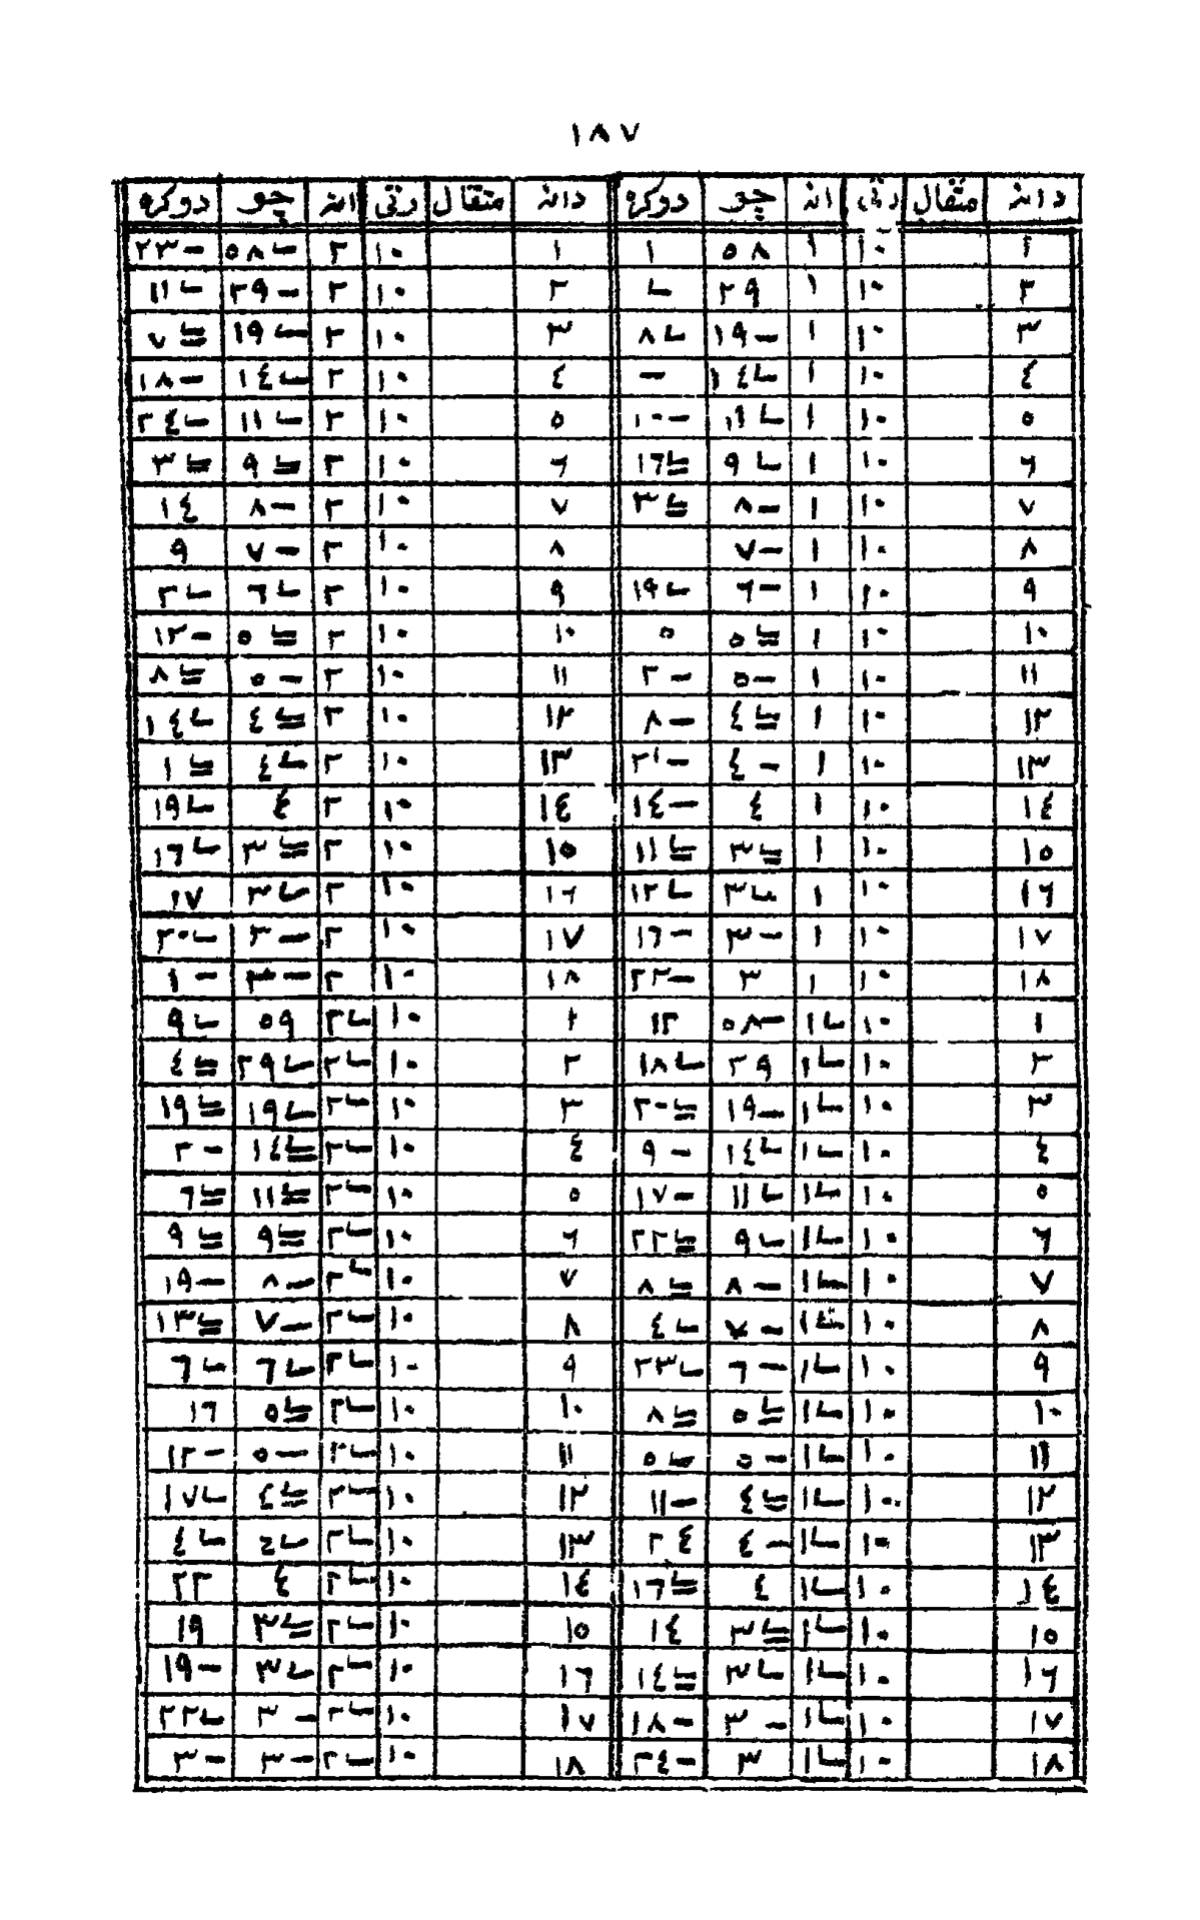 ١٨٧
دانه مثقال رتي انه چو دوكره دانه مثقال رتي انه چو دوكره
١ ١٠ ١ ٥٨ ١ ١ ١٠ ٢ ٥٨ ٢٣-
٢ ١٠ ١ ٢٩ ٢ ١٠ ٢ ٢٩- ١١
٣ ١٠ ١ ١٩- ٨ ٣ ١٠ ٢ ١٩ ٧
٤ ١٠ ١ ١٤ - ٤ ١٠ ٢ ١٤ ١٨-
٥ ١٠ ١ ١١ ١٠- ٥ ١٠ ٢ ١١ ٢٤
٦ ١٠ ١ ٩ ١٦ ٦ ١٠ ٢ ٩ ٣
٧ ١٠ ١ ٨- ٣ ٧ ١٠ ٢ ٨- ١٤
٨ ١٠ ١ ٧- ٨ ١٠ ٢ ٧- ٩
٩ ١٠ ١ ٦- ١٩ ٩ ١٠ ٢ ٦ ٢
١٠ ١٠ ١ ٥ ٥ ١٠ ١٠ ٢ ٥ ١٢-
١١ ١٠ ١ ٥- ٢- ١١ ١٠ ٢ ٥- ٨
١٢ ١٠ ١ ٤ ٨- ١٢ ١٠ ٢ ٤ ١٤
١٣ ١٠ ١ ٤- ٢١- ١٣ ١٠ ٢ ٤ ١
١٤ ١٠ ١ ٤ ١٤- ١٤ ١٠ ٢ ٤ ١٩
١٥ ١٠ ١ ٣ ١١ ١٥ ١٠ ٢ ٣ ١٦
١٦ ١٠ ١ ٣ ١٢ ١٦ ١٠ ٢ ٣ ١٧
١٧ ١٠ ١ ٣- ١٦- ١٧ ١٠ ٢ ٣- ٢٠
١٨ ١٠ ١ ٣ ٢٢- ١٨ ١٠ ٢ ٣- ١-
١ ١٠ ١ ٥٨- ١٢ ١ ١٠ ٢ ٥٩ ٩
٢ ١٠ ١ ٢٩ ١٨ ٢ ١٠ ٢ ٢٩ ٤
٣ ١٠ ١ ١٩- ٢٠ ٣ ١٠ ٢ ١٩ ١٩
٤ ١٠ ١ ١٤ ٩- ٤ ١٠ ٢ ١٤ ٢-
٥ ١٠ ١ ١١ ١٧- ٥ ١٠ ٢ ١١ ٦
٦ ١٠ ١ ٩ ٢٢ ٦ ١٠ ٢ ٩ ٩
٧ ١٠ ١ ٨- ٨ ٧ ١٠ ٢ ٨- ١٩-
٨ ١٠ ١ ٧- ٤ ٨ ١٠ ٢ ٧- ١٣
٩ ١٠ ١ ٦- ٢٣ ٩ ١٠ ٢ ٦ ٦
١٠ ١٠ ١ ٥ ٨ ١٠ ١٠ ٢ ٥ ١٦
١١ ١٠ ١ ٥- ٥ ١١ ١٠ ٢ ٥- ١٢-
١٢ ١٠ ١ ٤ ١١- ١٢ ١٠ ٢ ٤ ١٧
١٣ ١٠ ١ ٤- ٢٤ ١٣ ١٠ ٢ ٤ ٤
١٤ ١٠ ١ ٤ ١٦ ١٤ ١٠ ٢ ٤ ٢٢
١٥ ١٠ ١ ٣ ١٤ ١٥ ١٠ ٢ ٣ ١٩
١٦ ١٠ ١ ٣ ١٤ ١٦ ١٠ ٢ ٣ ١٩-
١٧ ١٠ ١ ٣- ١٨- ١٧ ١٠ ٢ ٣- ٢٢
١٨ ١٠ ١ ٣ ٢٤- ١٨ ١٠ ٢ ٣- ٣-